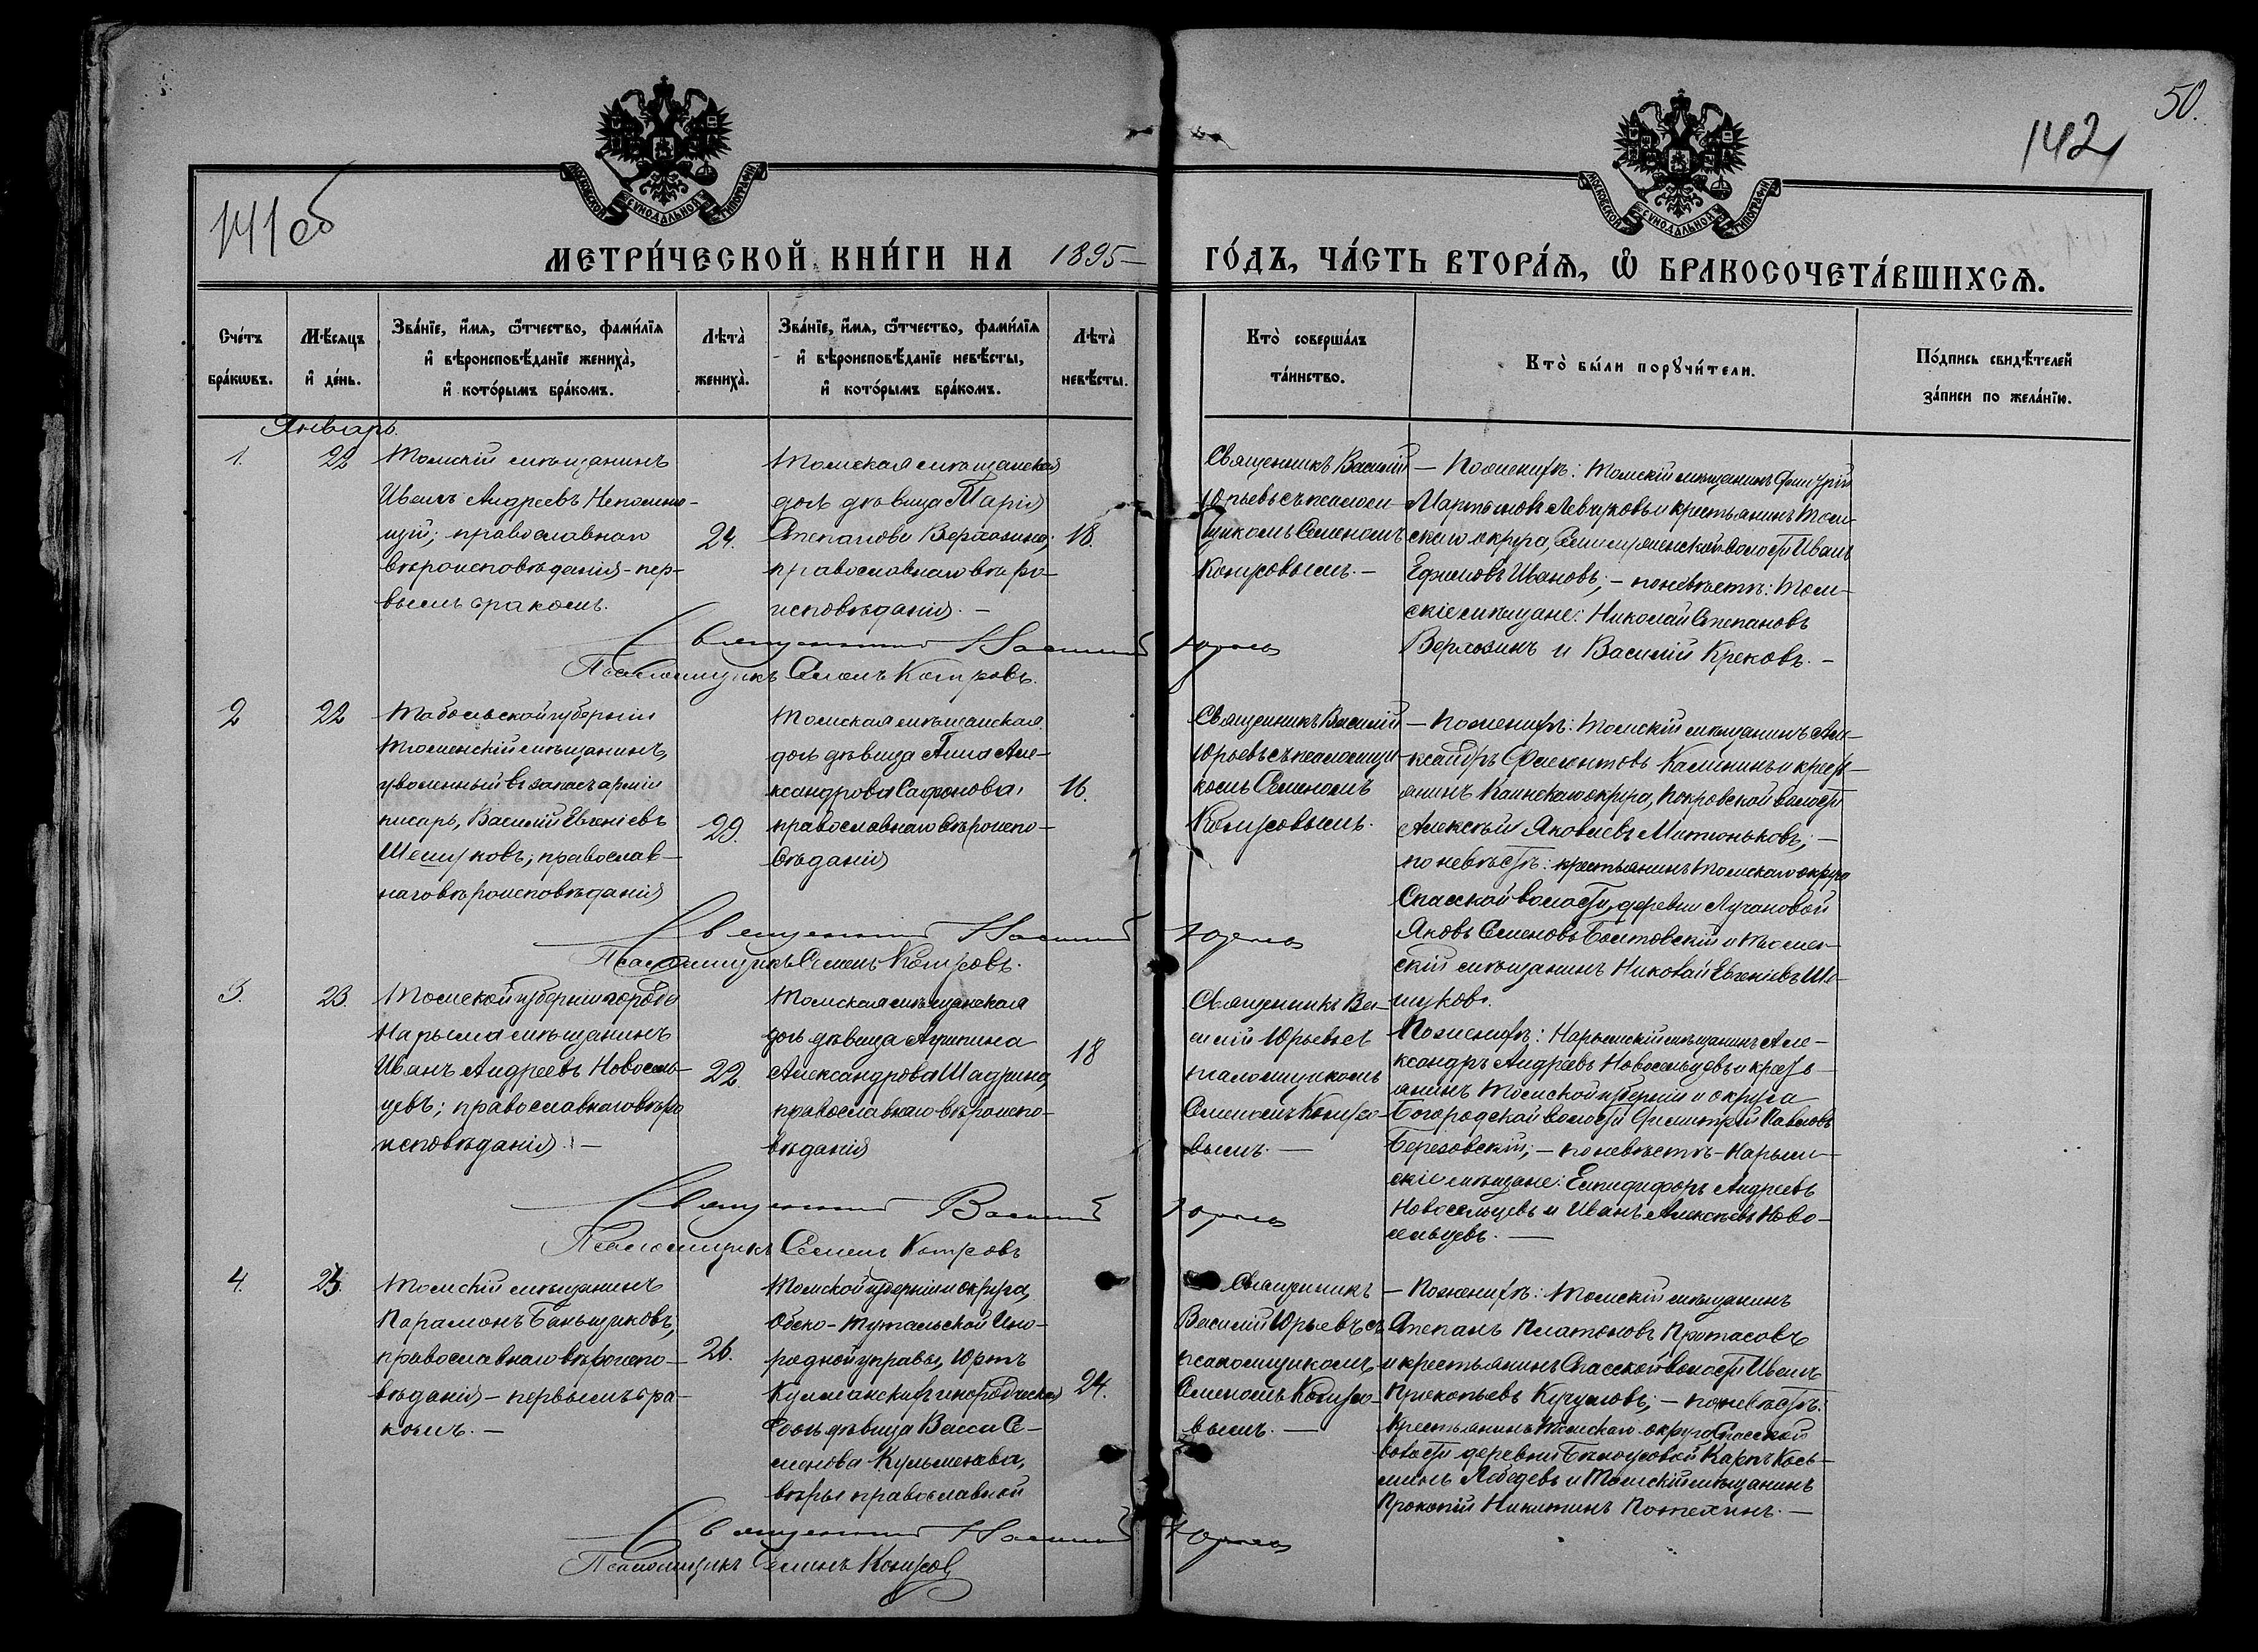 50.
142
141об
МОСКОВСКОЙ СѴНОДАЛЬНОЙ ТИПОГРАФІИ
МОСКОВСКОЙ СѴНОДАЛЬНОЙ ТИПОГРАФІИ
МЕТРИ́ЧЕСКОЙ КНИ́ГИ НА 1895 – ГО́ДЪ, ЧА́СТЬ ВТОРА́Я, Ѡ҆ БРАКОСОЧЕТА́ВШИХСЯ.
Сче́тъ
бра́кѡвъ.
Мѣ́сяцъ
и҆ де́нь.
Зва́нїе, и҆́мя, ѻ҆́тчество, фами́лїя
и҆ вѣроисповѣ́данїе жениха̀,
и҆ кото́рымъ бра́комъ.
Лѣта̀
жениха̀.
Зва́нїе, и҆́мя, ѻ҆́тчество, фами́лїя
и҆ вѣроисповѣ́данїе невѣ́сты,
и҆ кото́рымъ бра́комъ.
Лѣта̀
невѣ́сты.
Кто̀ соверша́лъ
та́инство.
Кто̀ бы́ли порꙋчи́тели.
По́дпись свидѣ́телей
за́писи по жела́нїю.
Январь.
1.
22
Томскій мѣщанинъ
Иванъ Андреевъ Непомня-
щій; православнаго
вѣроисповѣданія – пер-
вымъ бракомъ.
24.
Томская мѣщанская
дочь дѣвица Марія
Степанова Верхозина;
православнаго вѣро-
исповѣданія. –
18.
Священникъ Василій
Юрьевъ съ псалом-
щикомъ Семеномъ
Комровымъ. –
– По женихѣ: Томскій мѣщанинъ
крестьянинъ Том-
скаго округа, волости Иванъ
Ефимовъ Ивановъ; – по невѣстѣ: Том-
скіе мѣщане: Николай Степановъ
Верхозинъ и Василій Крековъ. –
Священникъ Василій Юрьевъ
Псаломщикъ Семенъ Комровъ.
2
22
Тобольской губерніи
Тюменскій мѣщанинъ,
уволенный въ запасъ арміи
писарь, Василій Евгеніевъ
Шешуковъ; православ-
наго вѣроисповѣданія
29.
Томская мѣщанская
дочь дѣвица Анна Але-
ксандрова Сафонова,
православнаго вѣроиспо-
вѣданія
16.
Священникъ Василій
Юрьевъ съ псаломщи-
комъ Семеномъ
Комровымъ.
– По женихѣ: Томскій мѣщанинъ Але-
ксандръ Калининъ и кресть-
янинъ Каинскаго округа, Покровской волости
Алексѣй Яковлевъ Митюньковъ; –
по невѣстѣ: крестьянинъ Томскаго округа
Спасской волости, деревни Лучановой
Яковъ Семеновъ и Тюмен-
скій мѣщанинъ Николай Евгеніевъ Ше-
шуковъ.
Священникъ Василій Юрьевъ
Псаломщикъ Семенъ Комровъ.
3.
23.
Томской губерніи города
Нарыма мѣщанинъ
Иванъ Андреевъ Новосель-
цевъ; православнаго вѣро
исповѣданія. –
22
Томская мѣщанская
дочь дѣвица Агрипина
Александрова Шадрина,
православнаго вѣроиспо-
вѣданія
18
Священникъ Ва-
силій Юрьевъ съ
псаломщикомъ
Семеномъ Комро-
вымъ. –
По женихѣ: Нарымскій мѣщанинъ Але-
ксандръ Андреевъ Новосельцевъ и кресть-
янинъ Томской губерніи и округа
Богородской волости Димитрій Павловъ
Березовскій; – по невѣстѣ – Нарым-
скіе мѣщане: Андреевъ
Новосельцевъ и Иванъ Алексѣевъ Ново-
сельцевъ. –
Священникъ Василій Юрьевъ
Псаломщикъ Семенъ Комровъ
4.
25.
Томскій мѣщанинъ
Парамонъ Баньщиковъ,
православнаго вѣроиспо-
вѣданія – первымъ бра-
комъ. –
26.
Томской губерніи и округа,
Обско-Тутальской Ино-
родной управы, Юртъ
инородческая
дочь дѣвица Васса Се-
менова Кульменева,
вѣры православной
24.
Священникъ
Василій Юрьевъ съ
псаломщикомъ
Семеномъ Комро-
вымъ. –
– По женихѣ: Томскій мѣщанинъ
Степанъ Платоновъ Протасовъ
и крестьянинъ Спасской волости Иванъ
Прокопьевъ; – по невѣстѣ:
Крестьянинъ Томскаго округа Спасской
волости деревни Бѣлоусовой Карпъ Кось-
минъ Лебедевъ и Томскій мѣщанинъ
Прокопій Никитинъ Потехинъ. –
Священникъ Василій Юрьевъ
Псаломщикъ Семенъ Комровъ